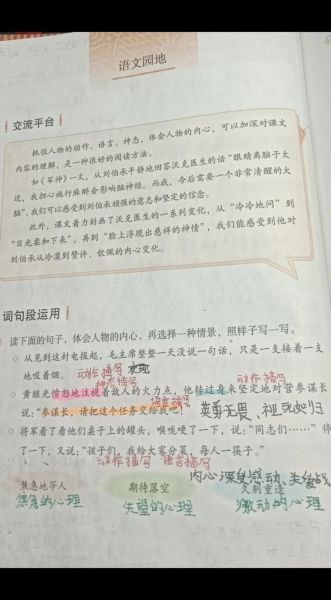 语文园地
交流平台
抓住人物的动作、语言、神态，体会人物的内心，可以加深对课文
内容的理解，是一种很好的阅读方法。
如《军神》一文，从刘伯承平静地回答沃克医生的话“眼睛离脑子太
近，我担心施行麻醉会影响脑神经。而我，今后需要一个非常清醒的大
脑”，我们可以感受到刘伯承顽强的意志和坚定的信念。
此外，课文着力刻画了沃克医生的一系列变化，从“冷冷地问”到
“目光柔和下来”，再到“脸上浮现出慈祥的神情”，我们能感受到他对
刘伯承从冷漠到赞许、钦佩的内心变化。
词句段运用
读下面的句子，体会人物的内心，再选择一种情景，照样子写一写。
从见到这封电报起，毛主席整整一天没说一句话，只是一支接着一支
地吸着烟。 动作描写
神态描写 动作描写
黄继光愤怒地注视着敌人的火力点，他转过身来坚定地对营参谋长
语言描写
说：“参谋长，请把这个任务交给我吧！” 英勇无畏、视死如归
将军看了看他们桌子上的罐头，喉咙哽了一下，说：“同志们……”停
了一下，又说：“孩子们，我给大家分菜，每人一筷子。”
动作描写 语言描写
内心深受感动、关爱战
焦急地等人 期待落空 久别重逢
焦急的心理 失望的心理 激动的心理